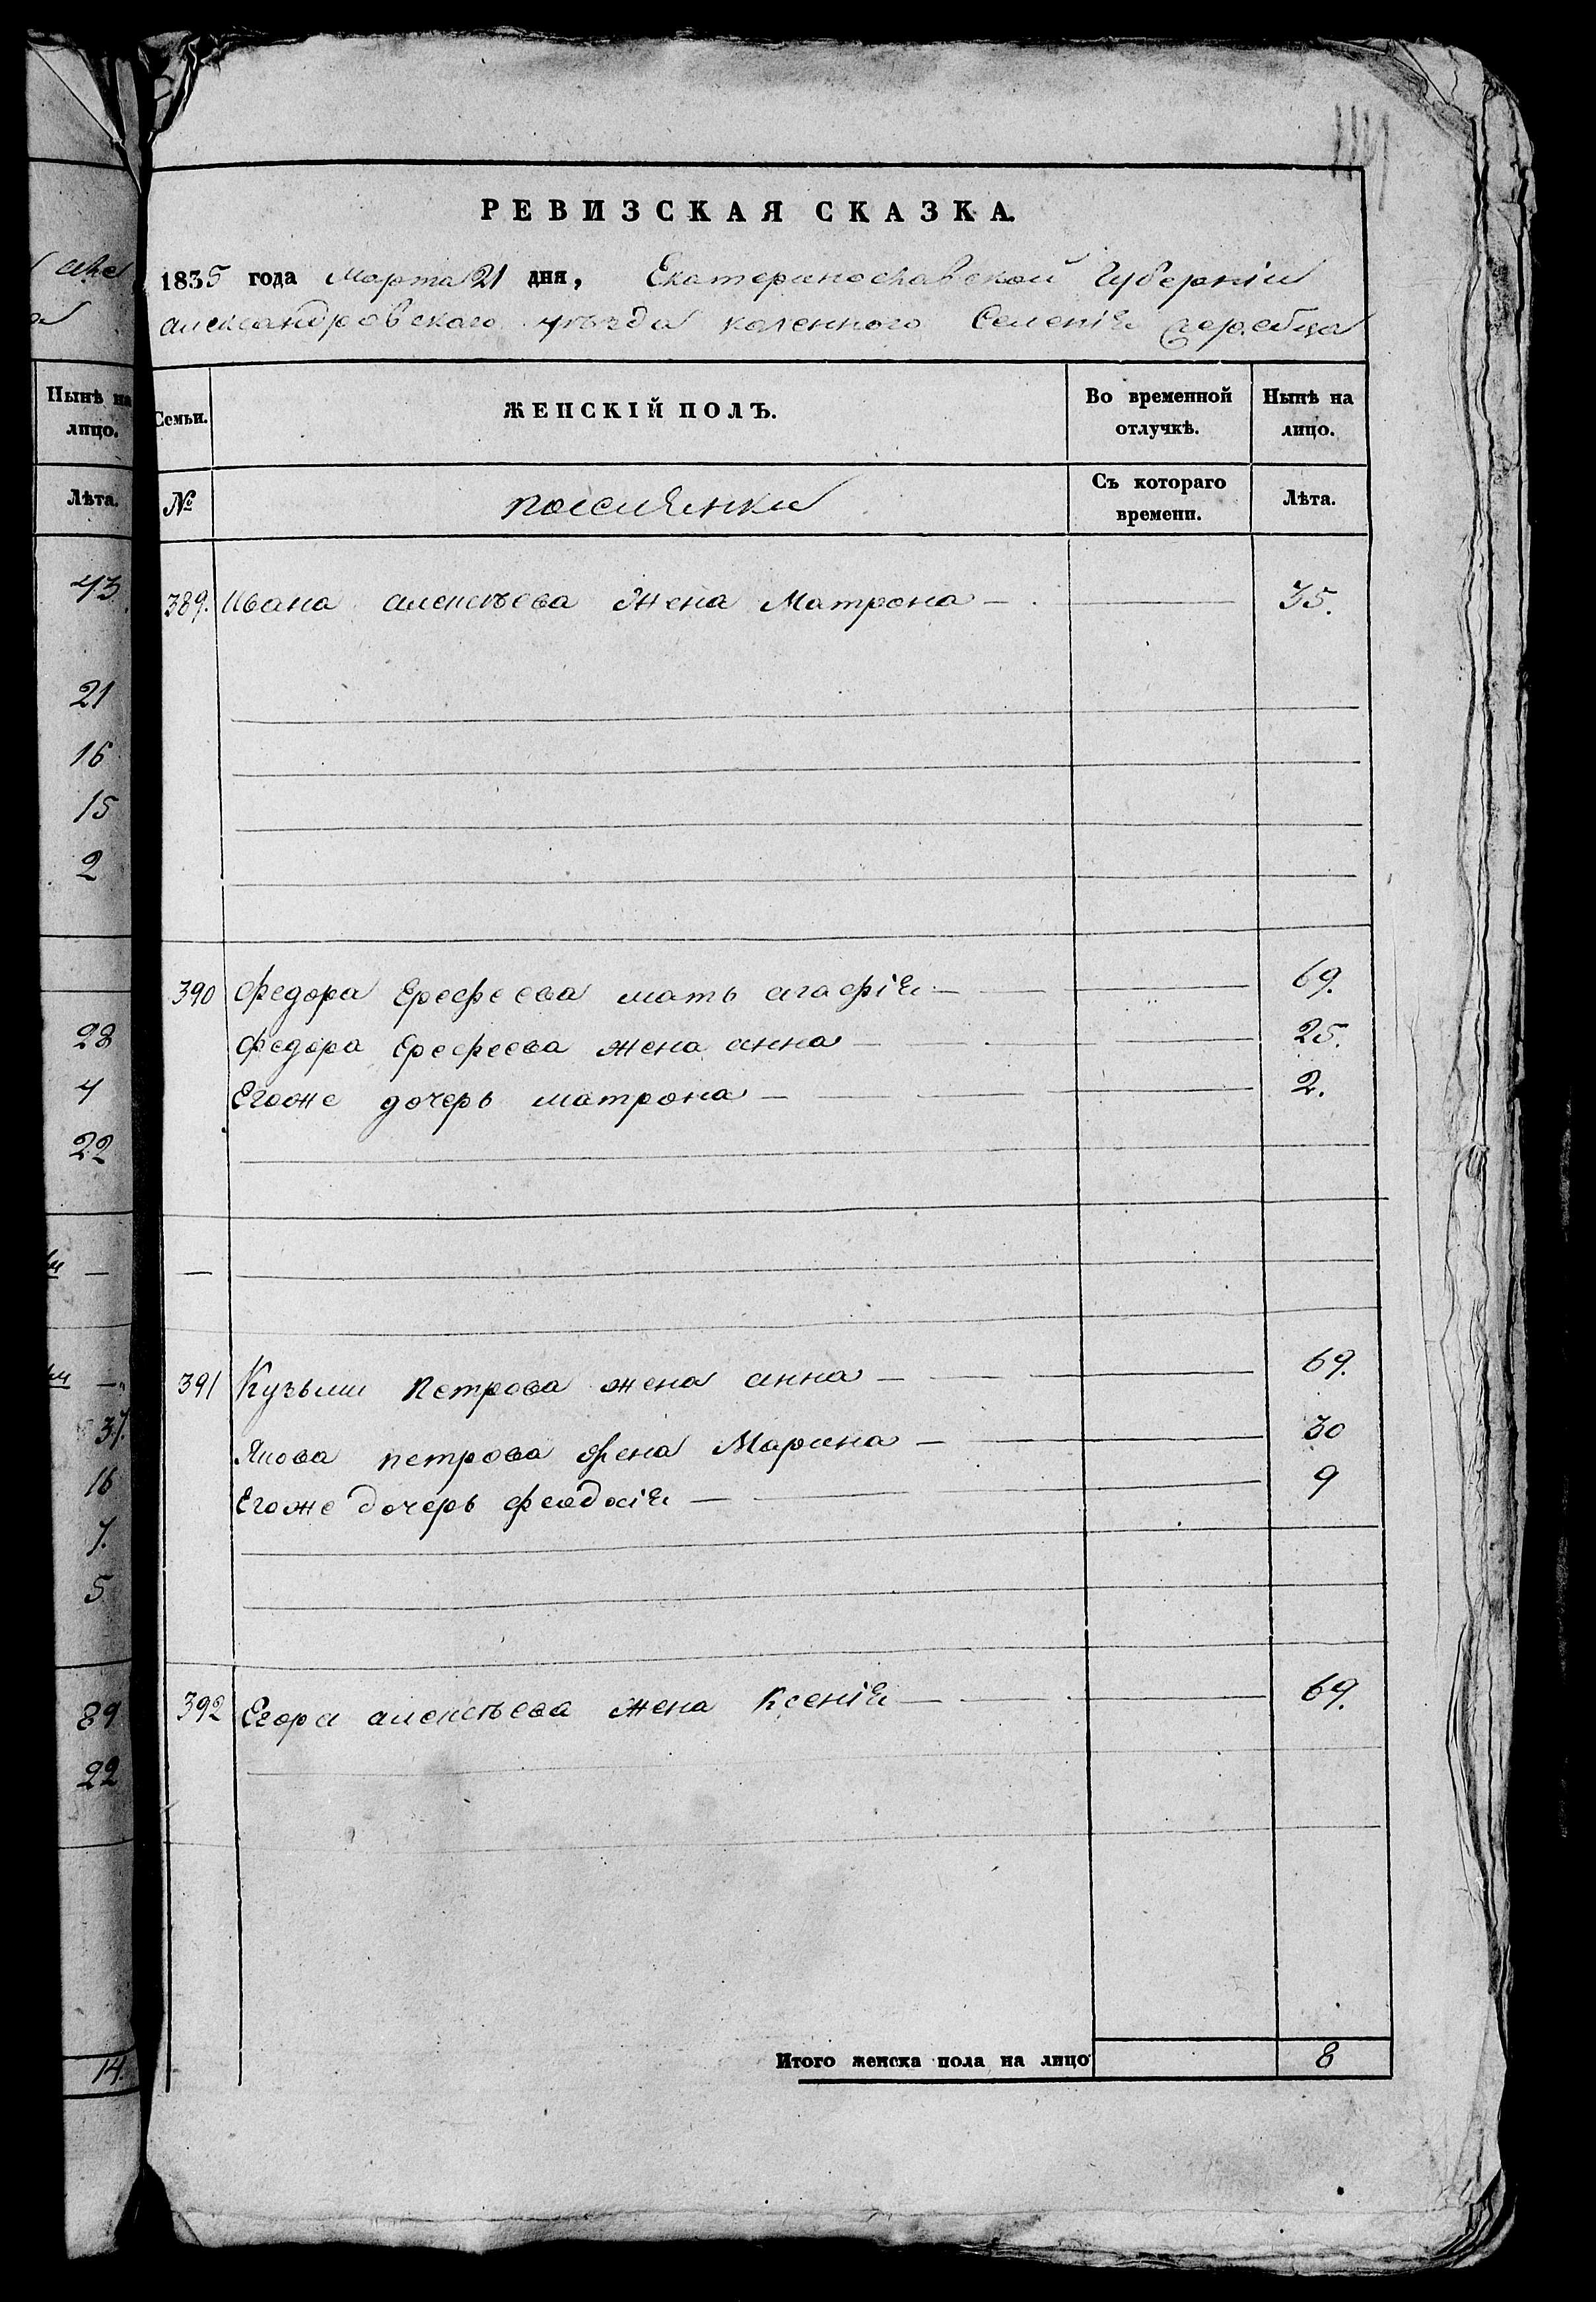 РЕВИЗСКАЯ СКАЗКА.
1835 года Марта 21 дня, Екатеринославской Губерніи
александровскаго уѣзда казенного Селенія
Нынѣ на лицо.
Семьи. ЖЕНСКІЙ ПОЛЪ. Во временной отлучкѣ. Нынѣ на лицо.
Лѣта.
№ поселянки Съ котораго времени. Лѣта.
43
389. Ивана алексѣева Жена Матрона — 35.
21
16
15
2
390 Федора Ерофеева мать агафія — 69.
28 Федора Ерофеева жена анна — 25.
4 Егоже дочерь матрона — 2.
22
—
391 Кузьми Петрова жена анна — 69.
37. Якова петрова жена Марина — 30
16 Егоже дочерь феодосія — 9
7.
5
89 392 Егора алексѣева жена Ксенія — 69.
22
14. Итого женска пола на лицо 8